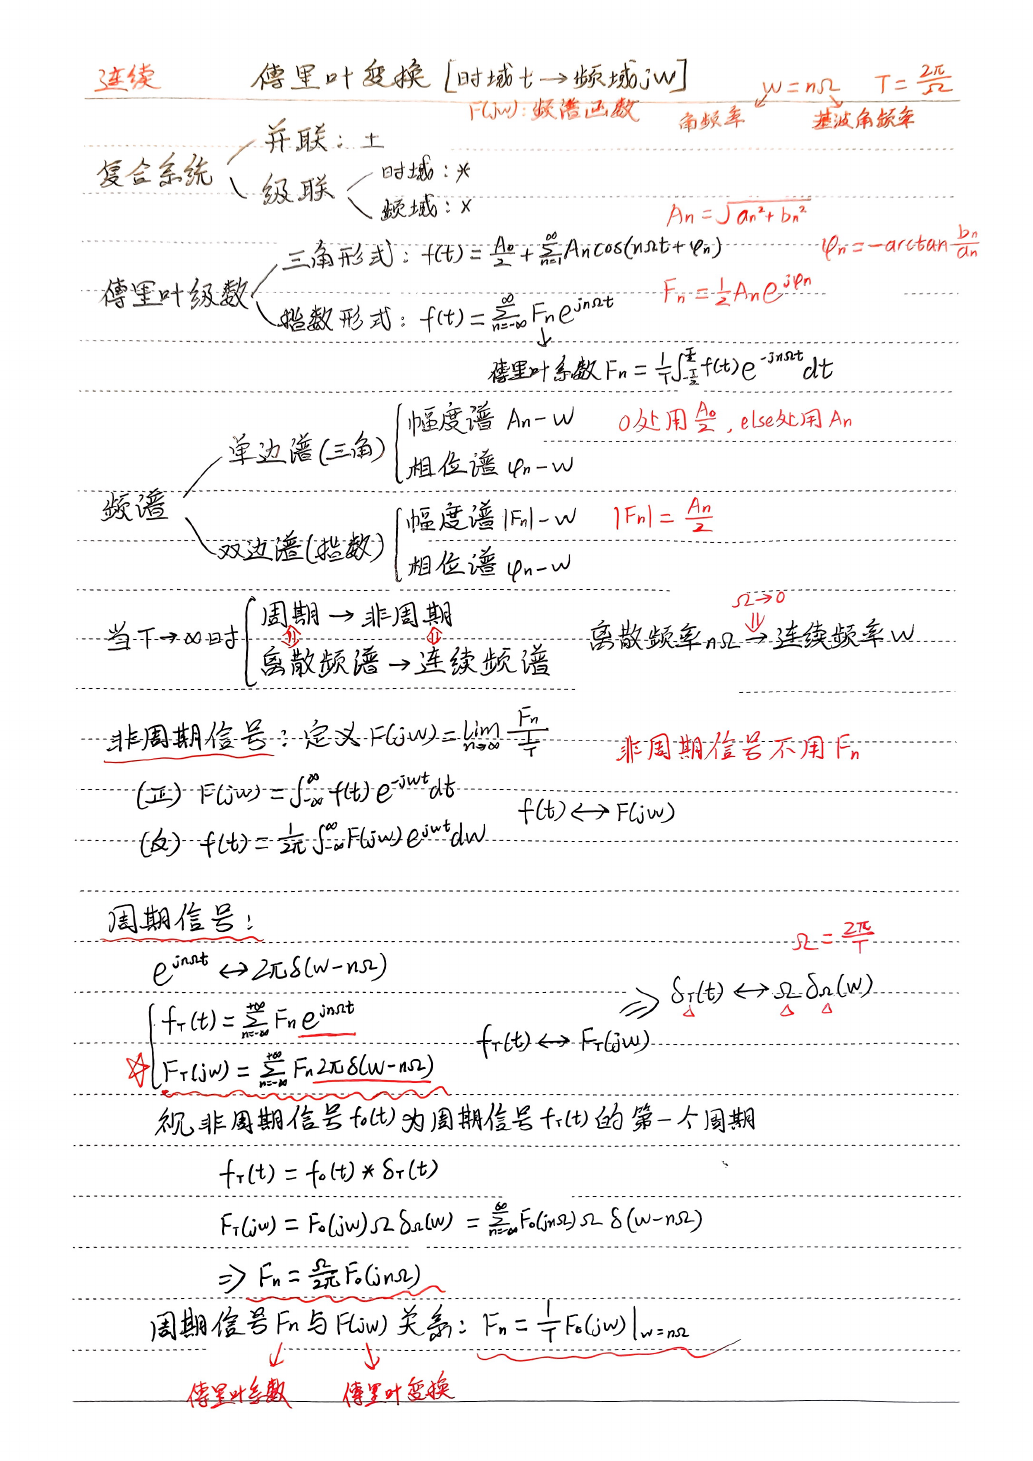 连续 傅里叶变换 [时域t→频域jw] w=nΩ T=2π/Ω
F(jw):频谱函数 角频率 基波角频率
复合系统
并联:±
级联
时域:*
频域:×
An=√(an²+bn²)
φn=-arctan bn/an
傅里叶级数
三角形式:f(t)=A₀/2+∑_{n=1}^{∞}Ancos(nΩt+φn)
Fn=½Ane^{jφn}
指数形式:f(t)=∑_{n=-∞}^{∞}Fne^{jnΩt}
傅里叶系数Fn=1/T∫_{-T/2}^{T/2}f(t)e^{-jnΩt}dt
频谱
单边谱(三角)
幅度谱 An-w 0处用A₀/2,else处用An
相位谱 φn-w
双边谱(指数)
幅度谱|Fn|-w |Fn|=An/2
相位谱 φn-w
当T→∞时
周期→非周期
离散频谱→连续频谱
Ω→0
离散频率nΩ→连续频率w
非周期信号:定义F(jw)=lim_{n→∞} Fn/(1/T) 非周期信号不用Fn
(正) F(jw)=∫_{-∞}^{∞}f(t)e^{-jwt}dt
f(t)↔F(jw)
(反) f(t)=1/2π∫_{-∞}^{∞}F(jw)e^{jwt}dw
周期信号:
Ω=2π/T
e^{jnΩt}↔2πδ(w-nΩ)
⇒δT(t)↔ΩδΩ(w)
fT(t)=∑_{n=-∞}^{+∞}Fne^{jnΩt}
fT(t)↔FT(jw)
FT(jw)=∑_{n=-∞}^{+∞}Fn2πδ(w-nΩ)
视非周期信号f₀(t)为周期信号fT(t)的第一个周期
fT(t)=f₀(t)*δT(t)
FT(jw)=F₀(jw)ΩδΩ(w)=∑_{n=-∞}^{∞}F₀(jnΩ)Ωδ(w-nΩ)
⇒Fn=Ω/2π F₀(jnΩ)
周期信号Fn与F(jw)关系:Fn=1/T F₀(jw)|w=nΩ
傅里叶系数 傅里叶变换